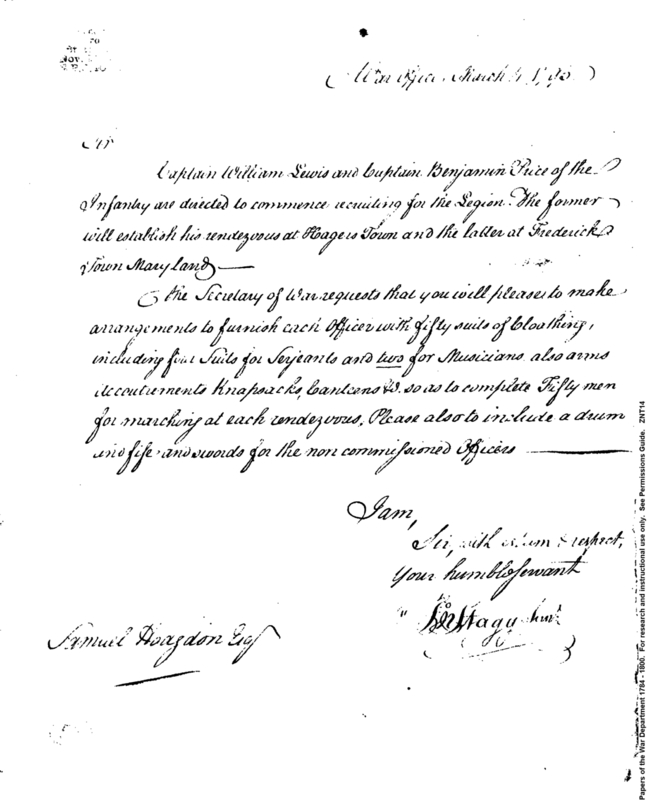 Nov.
War Office March
Sir
Captain William Lewis and Captain Benjamin Price of the
Infantry are directed to commence recruiting for the Legion. The former
will establish his rendezvous at Hagers Town and the latter at Frederick
Town Maryland —
The Secretary of War requests that you will please to make
arrangements to furnish each Officer with fifty suits of Cloathing,
including four Suits for Serjeants and two for Musicians also arms
Accoutrements Knapsacks, Canteens &c. so as to complete Fifty men
for marching at each rendezvous. Please also to include a drum
and fife and swords for the non commissioned Officers —
I am,
Sir, with esteem & respect,
Your humble Servant
Jno Stagg Junr
Samuel Hodgdon Esqr
Papers of the War Department 1784 - 1800. For research and instructional use only. See Permissions Guide. ZNT14